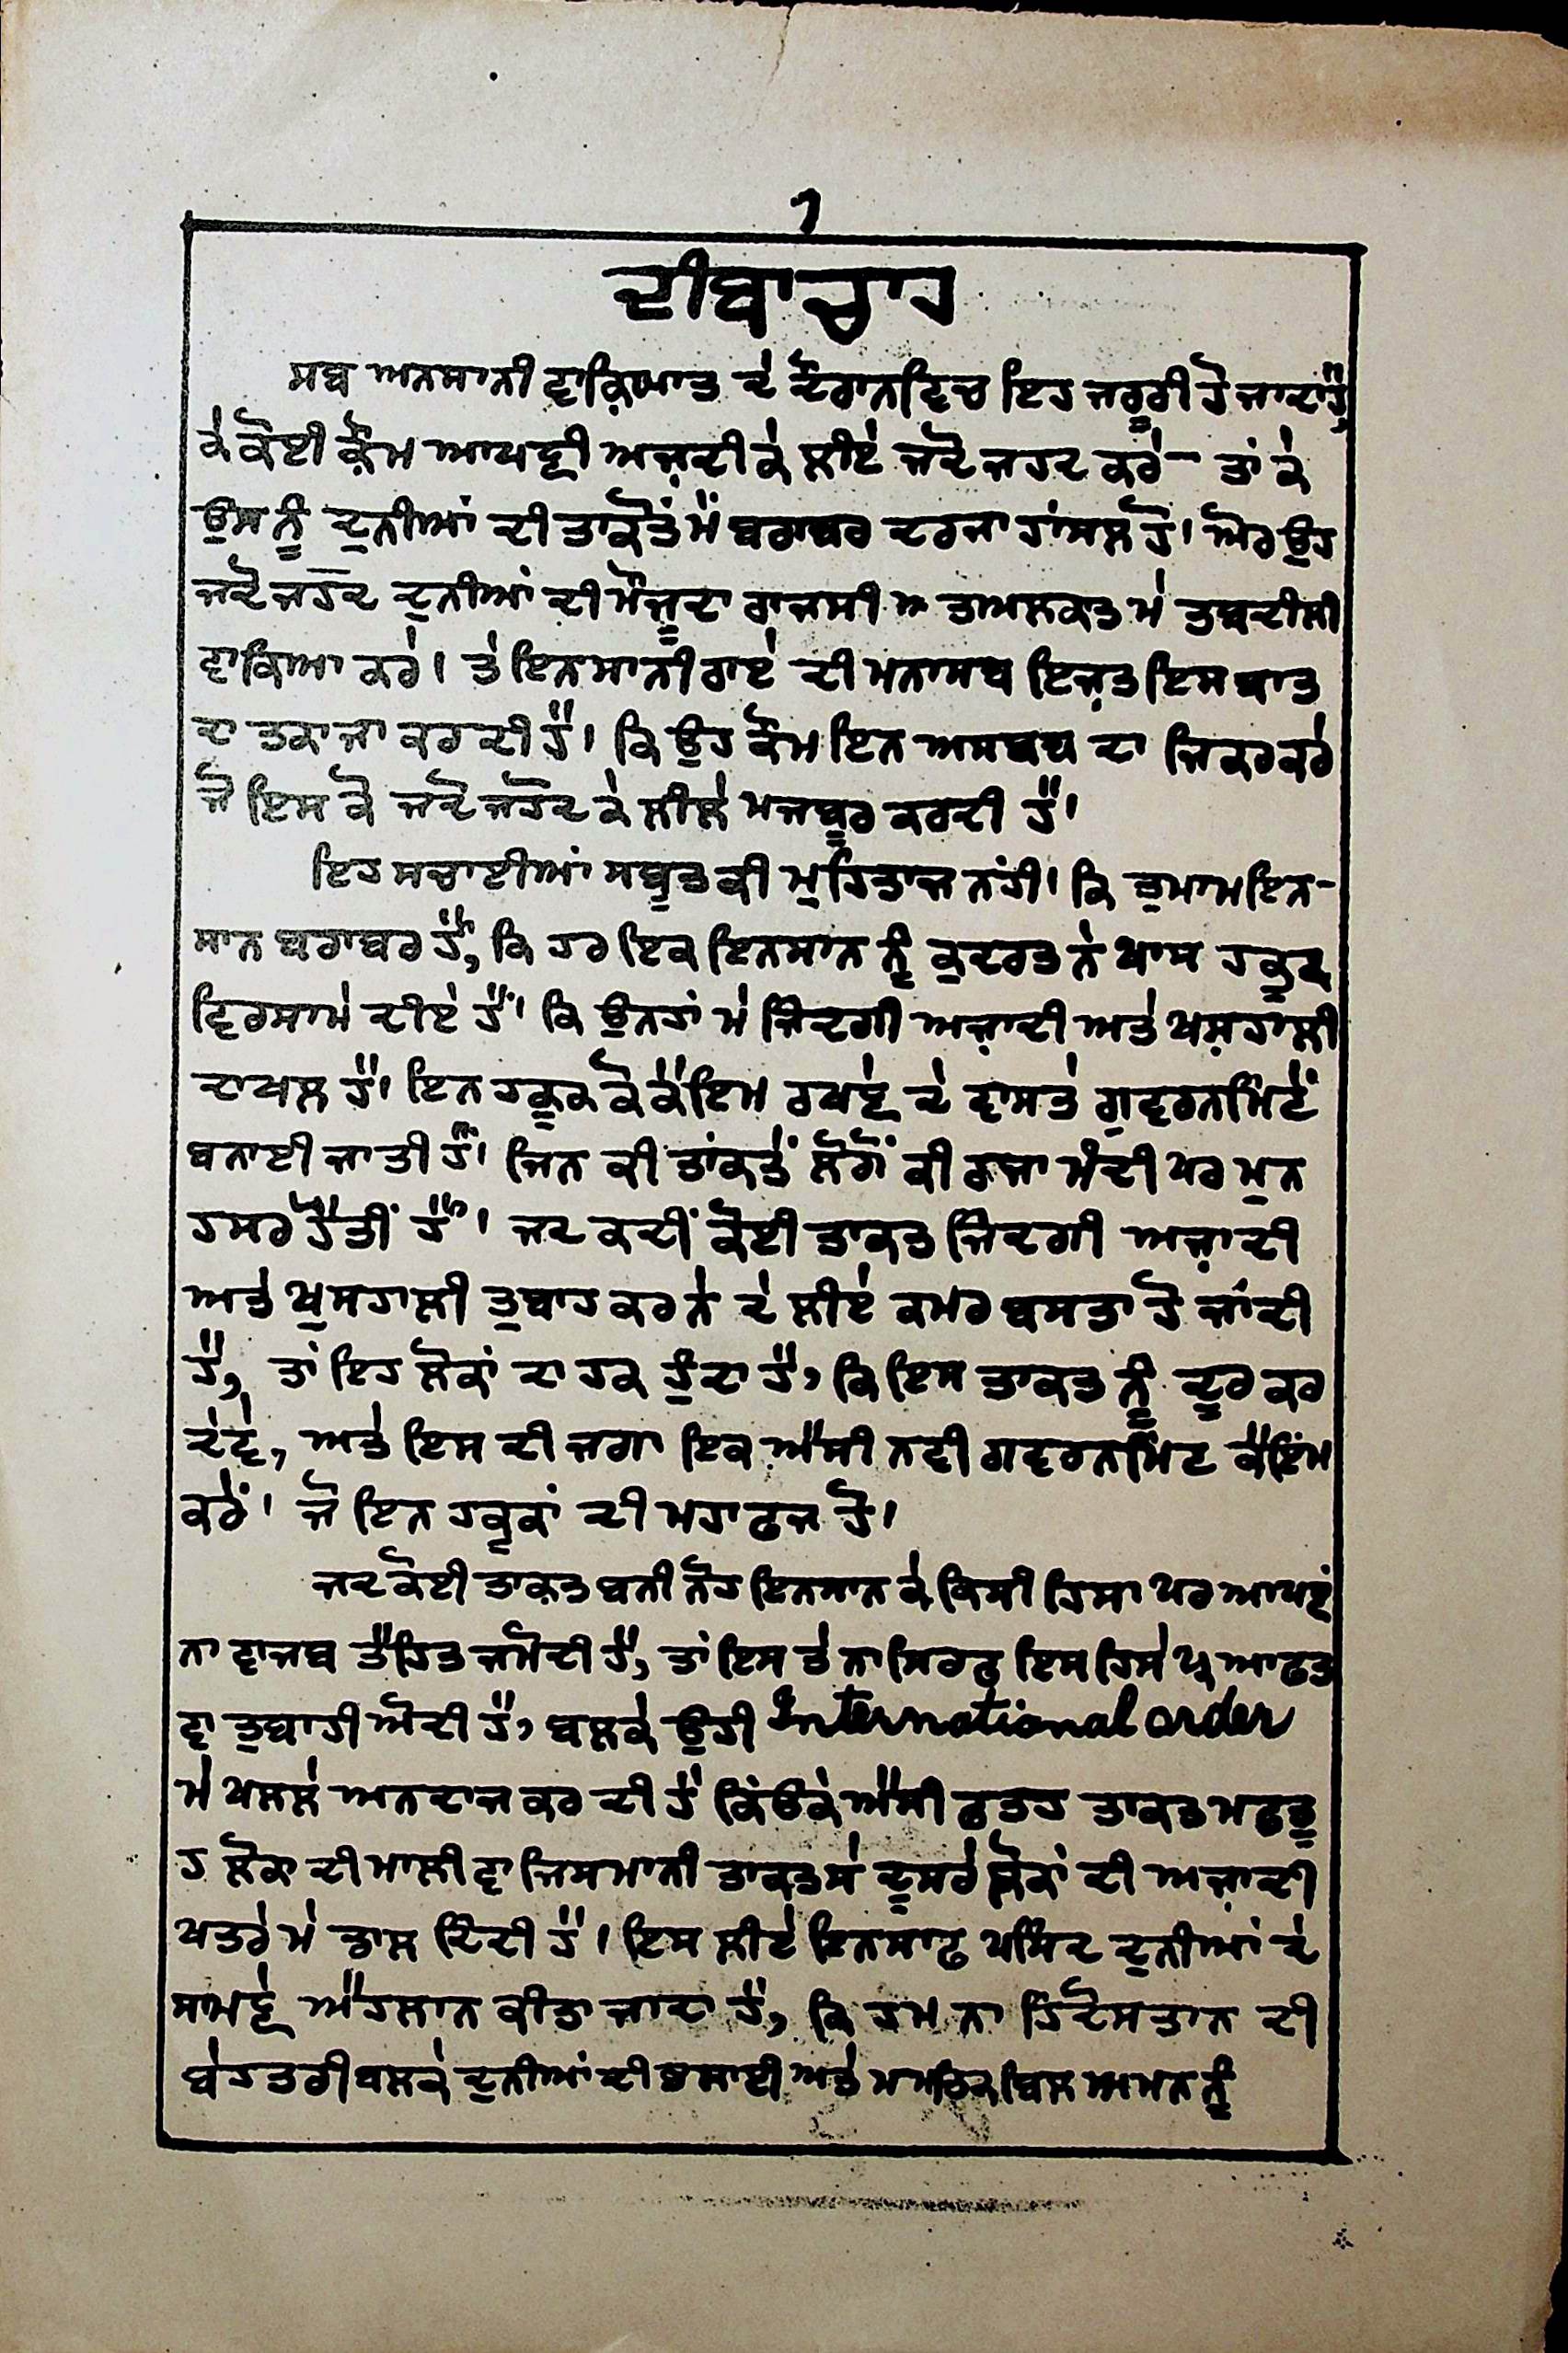 ੧
ਦੀਬਾਚਾਹ
ਸਬ ਅਨਸਾਨੀ ਵਾਕਿਆਤ ਦੇ ਦੌਰਾਨ ਵਿਚ ਇਹ ਜਰੂਰੀ ਹੋ ਜਾਦਾ ਹੈ,
ਕੇ ਕੋਈ ਕੌਮ ਆਪਣੀ ਅਜ਼ਦੀ ਕੇ ਲੀਏ ਜਦੋ ਜਹਦ ਕਰੇ- ਤਾਂ ਕੇ
ਉਸ ਨੂੰ ਦੁਨੀਆਂ ਦੀ ਤਾਕੋਤੋਂ ਮੇਂ ਬਰਾਬਰ ਦਰਜਾ ਹਾਂਸਲ ਹੋ। ਔਰ ਉਹ
ਜਦੋ ਜਹਦ ਦੁਨੀਆਂ ਦੀ ਮੌਜੂਦਾ ਰਾਜਸੀ ਤਾਅਲਕਤ ਮੇ ਤਬਦੀਲੀ
ਵਾਕਿਆ ਕਰੇ। ਤੇ ਇਨਸਾਨੀ ਰਾਏ ਦੀ ਮਨਾਸਬ ਇਜ਼ਤ ਇਸ ਬਾਤ
ਦਾ ਤਕਾਜਾ ਕਰਦੀ ਹੈ। ਕਿ ਉਹ ਕੌਮ ਇਨ ਅਸਬਬ ਦਾ ਜਿਕਰ ਕਰੇ
ਜੋ ਇਸ ਕੋ ਜਦੋ ਜਹੋਦ ਕੇ ਲੀਲੇ ਮਜਬੂਰ ਕਰਦੀ ਹੈ।
ਇਹ ਸਚਾਈਆਂ ਸਬੂਤ ਕੀ ਮੁਹਿਤਾਜ ਨਹੀ। ਕਿ ਤੁਮਾਮ ਇਨ-
ਸਾਨ ਬਰਾਬਰ ਹੈਂ, ਕਿ ਹਰ ਇਕ ਇਨਸਾਨ ਨੂੰ ਕੁਦਰਤ ਨੇ ਖਾਸ ਹਕੂਕ
ਵਿਰਸਾ ਮੇ ਦੀਏ ਹੈਂ। ਕਿ ਉਨਹਾਂ ਮੇ ਜਿੰਦਗੀ ਅਜ਼ਾਦੀ ਅਤੇ ਖਸ਼ਹਾਲੀ
ਦਾਖਲ ਹੈ। ਇਨ ਹਕੂਕ ਕੋ ਕੈਇਮ ਰਖਣੇ ਦੇ ਵਾਸਤੇ ਗੁਵਰਨਮਿੰਟੇਂ
ਬਨਾਈ ਜਾਤੀ ਹੈਂ। ਜਿਨ ਕੀ ਤਾਂਕਤੇਂ ਲੋਗੋਂ ਕੀ ਰਜਾ ਮੰਦੀ ਪਰ ਮੁਨ
ਹਸਰ ਹੋਤੀਂ ਹੈਂ। ਜਦ ਕਦੀਂ ਕੋਈ ਤਾਕਤ ਜਿੰਦਗੀ ਅਜ਼ਾਦੀ
ਅਤੇ ਖੁਸਹਾਲੀ ਤੁਬਾਹ ਕਰਨੇ ਦੇ ਲੀਏ ਕਮਰ ਬਸਤਾ ਹੋ ਜਾਂਦੀ
ਹੈ, ਤਾਂ ਇਹ ਲੋਕਾਂ ਦਾ ਹਕ ਹੁੰਦਾ ਹੈ, ਕਿ ਇਸ ਤਾਕਤ ਨੂੰ ਦੂਰ ਕਰ
ਦੇਵੇ, ਅਤੇ ਇਸ ਦੀ ਜਗਾ ਇਕ ਐਸੀ ਨਵੀ ਗਵਰਨਮਿੰਟ ਕੈਇੰਮ
ਕਰੇਂ। ਜੋ ਇਨ ਹਕੂਕਾਂ ਦੀ ਮਹਾਫਜ ਹੋ।
ਜਦ ਕੋਈ ਤਾਕ਼ਤ ਬਨੀ ਨੋਹ ਇਨਸਾਨ ਕੇ ਕਿਸੀ ਹਿਸਾ ਪਰ ਆਪਣਂ
ਨਾ ਵਾਜਬ ਤੈਹਿਤ ਜਮੋਦੀ ਹੈ, ਤਾਂ ਇਸ ਤੇ ਨਾ ਸਿਰਫ ਇਸ ਹਿਸੇ ਪ੍ਰ ਆਫਤ
ਵਾ ਤੁਬਾਹੀ ਔਦੀ ਹੈ, ਬਲਕੇ ਉਹੀ International order
ਮੇ ਖਲਲੇ ਅਨਦਾਜ ਕਰ ਦੀ ਹੈ ਕਿੰਉਕੇ ਐਸੀ ਫਤਹ ਤਾਕਤ ਮਫਤੂ
ਹ ਲੋਕਾ ਦੀ ਮਾਲੀ ਵਾ ਜਿਸਮਾਨੀ ਤਾਕਤ ਸੇ ਦੂਸਰੇ ਲੋਕਾਂ ਦੀ ਅਜ਼ਾਦੀ
ਖਤਰੇ ਮੇ ਡਾਲ ਦਿੰਦੀ ਹੈ। ਇਸ ਲੀਏ ਇਨਸਾਫ ਪਸਿੰਦ ਦੁਨੀਆਂ ਦੇ
ਸਾਮਣੇ ਐਹਲਾਨ ਕੀਤਾ ਜਾਦਾ ਹੈ, ਕਿ ਹਮ ਨਾ ਹਿੰਦੋਸਤਾਨ ਦੀ
ਬੇਹਤਰੀ ਬਲਕੇ ਦੁਨੀਆਂ ਦੀ ਭਲਾਈ ਅਤੇ ਅਮਨ ਨੂੰ